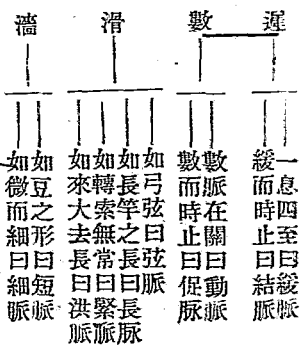 遲
一息四至曰緩脈
緩而時止曰結脈
數
數脈在關曰動脈
數而時止曰促脉
滑
如弓弦曰弦脈
如長竿之長曰長脈
如轉索無常曰緊脈
如來大去長曰洪脈
濇
如豆之形曰短脈
如微而細曰細脈